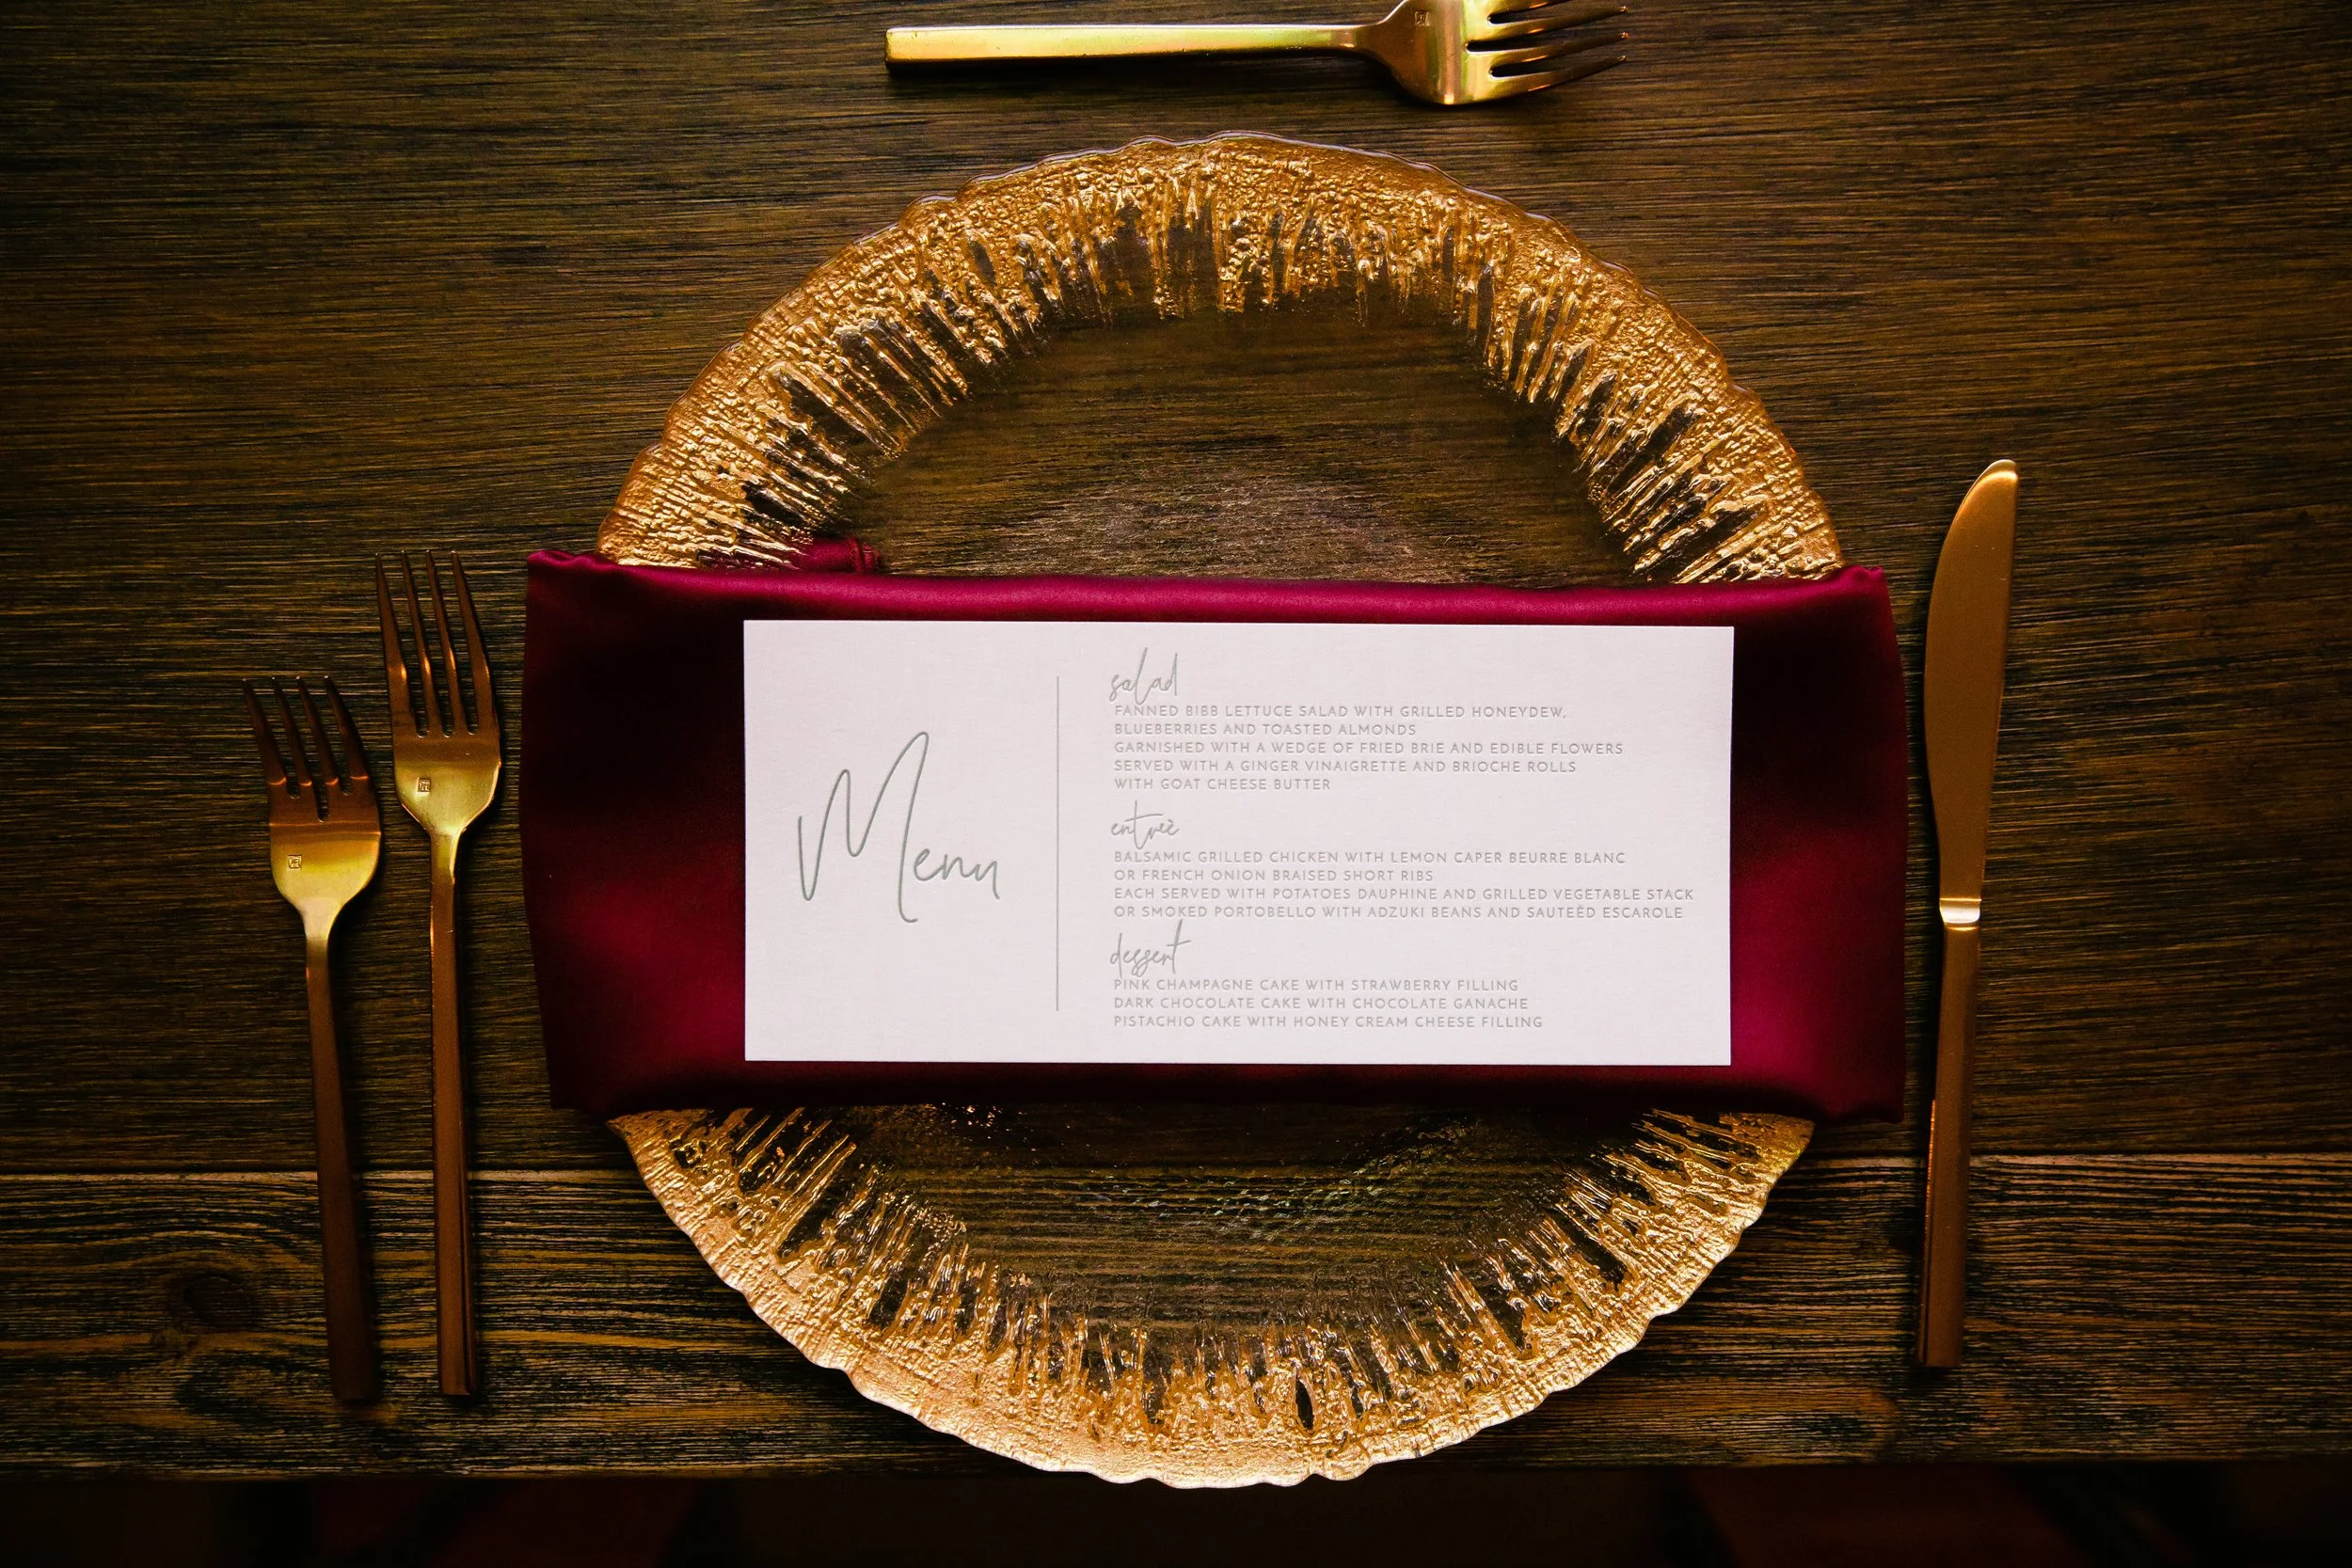 Menu
salad
FANNED BIBB LETTUCE SALAD WITH GRILLED HONEYDEW,
BLUEBERRIES AND TOASTED ALMONDS
GARNISHED WITH A WEDGE OF FRIED BRIE AND EDIBLE FLOWERS
SERVED WITH A GINGER VINAIGRETTE AND BRIOCHE ROLLS
WITH GOAT CHEESE BUTTER
entreè
BALSAMIC GRILLED CHICKEN WITH LEMON CAPER BEURRE BLANC
OR FRENCH ONION BRAISED SHORT RIBS
EACH SERVED WITH POTATOES DAUPHINE AND GRILLED VEGETABLE STACK
OR SMOKED PORTOBELLO WITH ADZUKI BEANS AND SAUTEÉD ESCAROLE
dessert
PINK CHAMPAGNE CAKE WITH STRAWBERRY FILLING
DARK CHOCOLATE CAKE WITH CHOCOLATE GANACHE
PISTACHIO CAKE WITH HONEY CREAM CHEESE FILLING